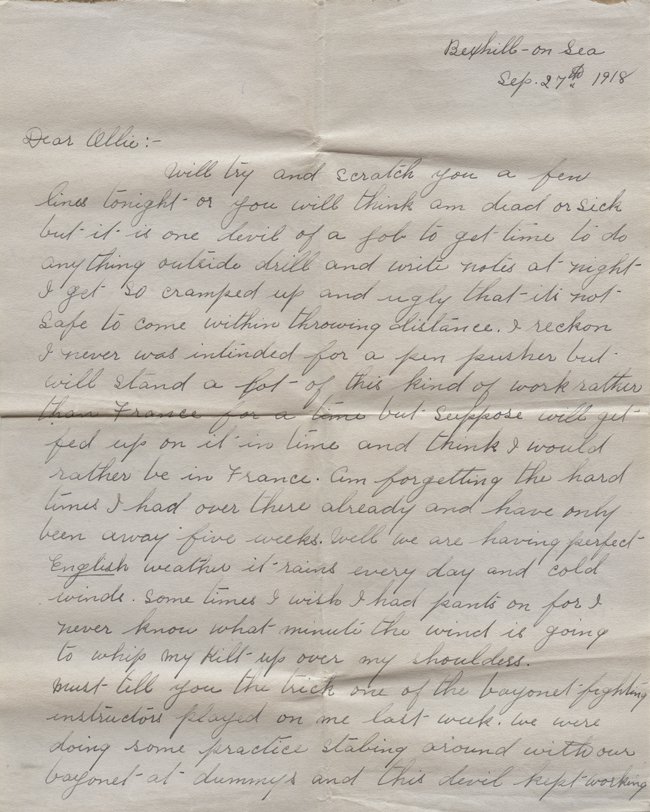 Bexhill-on Sea
Sep. 27th 1918
Dear Ollie:-
Will try and scratch you a few
lines tonight or you will think am dead or sick
but it is one devil of a job to get time to do
anything outside drill and write notes at night
I get so cramped up and ugly that its not
safe to come within throwing distance. I reckon
I never was intended for a pen pusher but
will stand a lot of this kind of work rather
than France for a time but suppose will get
fed up on it in time and think I would
rather be in France. Am forgetting the hard
times I had over there already and have only
been away five weeks. Well we are having perfect
English weather it rains every day and cold
winds. Some times I wish I had pants on for I
never know what minute the wind is going
to whip my kilt up over my shoulders.
Must tell you the trick one of the bayonet fighting
instructors played on me last week. We were
doing some practice stabing around with our
bayonet at dummys and this devil kept working